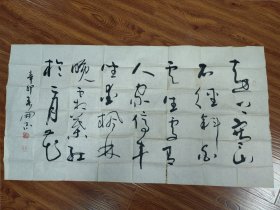 遠上寒山
石徑斜白
雲生處有
人家停车
坐爱楓林
晚霜葉红
於二月花
辛卯